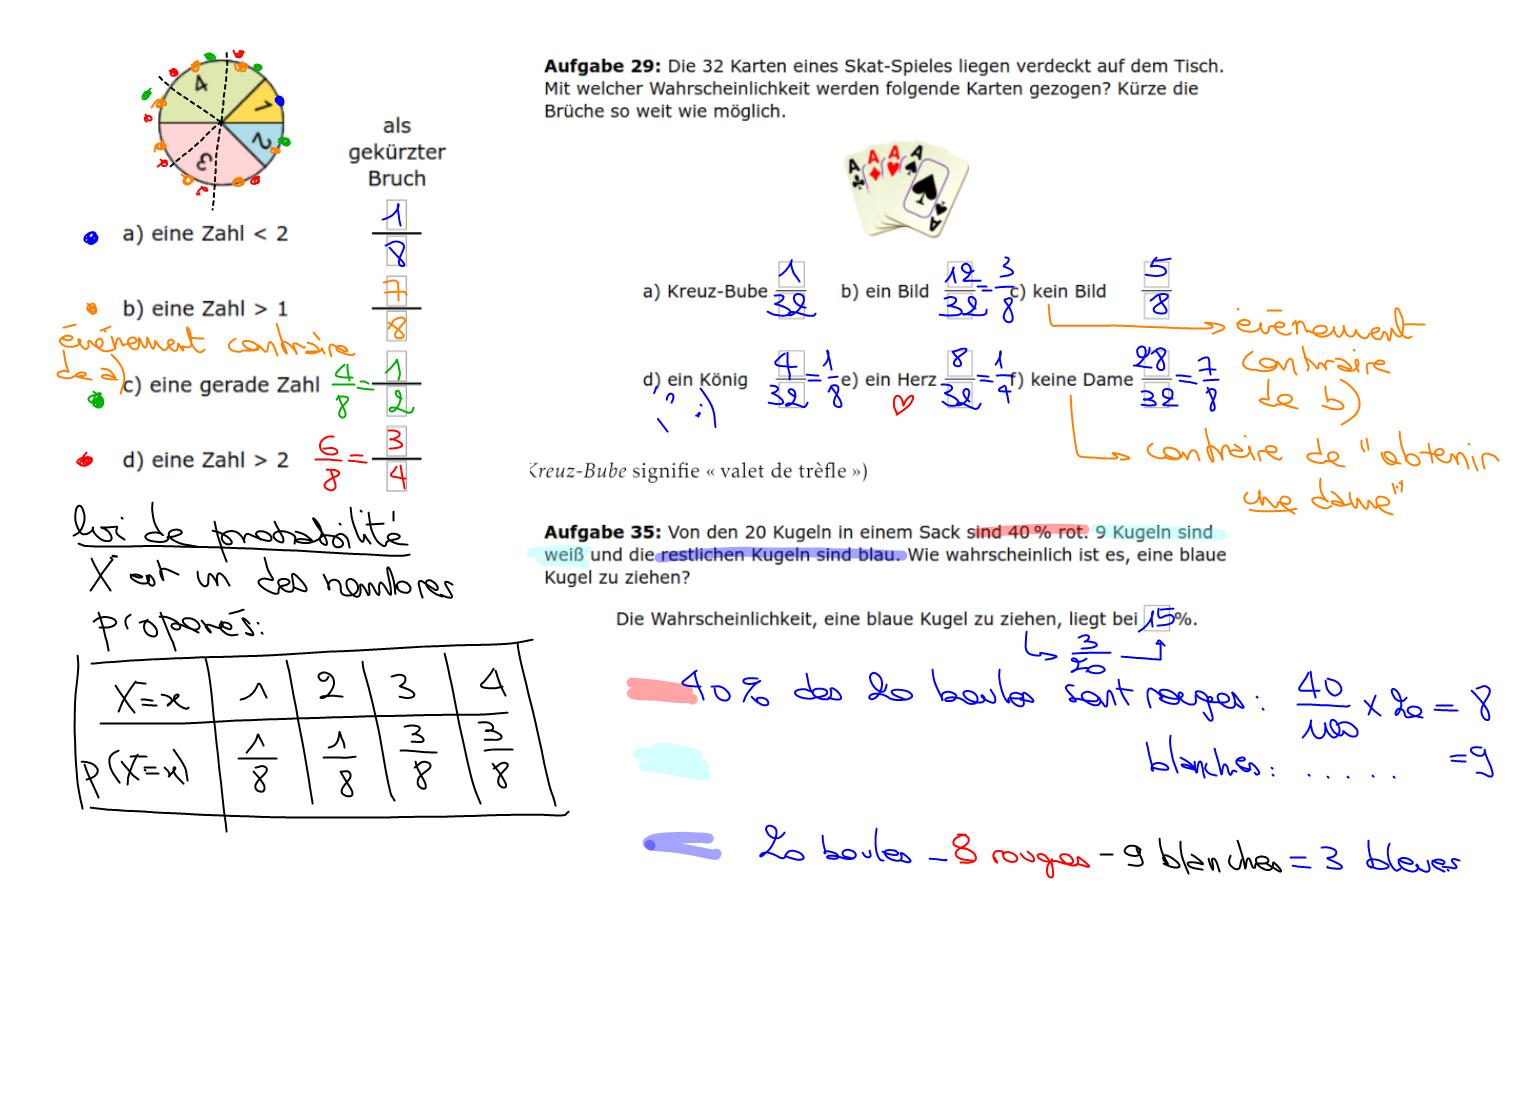 4
1
2
3
als
gekürzter
Bruch
a) eine Zahl < 2 1/8
b) eine Zahl > 1 7/8
événement contraire
de a)
c) eine gerade Zahl 4/8 = 1/2
d) eine Zahl > 2 6/8 = 3/4
loi de probabilité
X est un des nombres
proposés:
X=x 1 2 3 4
p(X=x) 1/8 1/8 3/8 3/8
Aufgabe 29: Die 32 Karten eines Skat-Spieles liegen verdeckt auf dem Tisch.
Mit welcher Wahrscheinlichkeit werden folgende Karten gezogen? Kürze die
Brüche so weit wie möglich.
A A A A
A
a) Kreuz-Bube 1/32 b) ein Bild 12/32 = 3/8 c) kein Bild 5/8
événement
contraire
de b)
d) ein König 4/32 = 1/8 e) ein Herz 8/32 = 1/4 f) keine Dame 28/32 = 7/8
:)
contraire de "obtenir
une dame"
Kreuz-Bube signifie « valet de trèfle »)
Aufgabe 35: Von den 20 Kugeln in einem Sack sind 40 % rot. 9 Kugeln sind
weiß und die restlichen Kugeln sind blau. Wie wahrscheinlich ist es, eine blaue
Kugel zu ziehen?
Die Wahrscheinlichkeit, eine blaue Kugel zu ziehen, liegt bei 15%.
3/20
40% des 20 boules sont rouges: 40/100 × 20 = 8
blanches: ...... =9
20 boules - 8 rouges - 9 blanches = 3 bleues